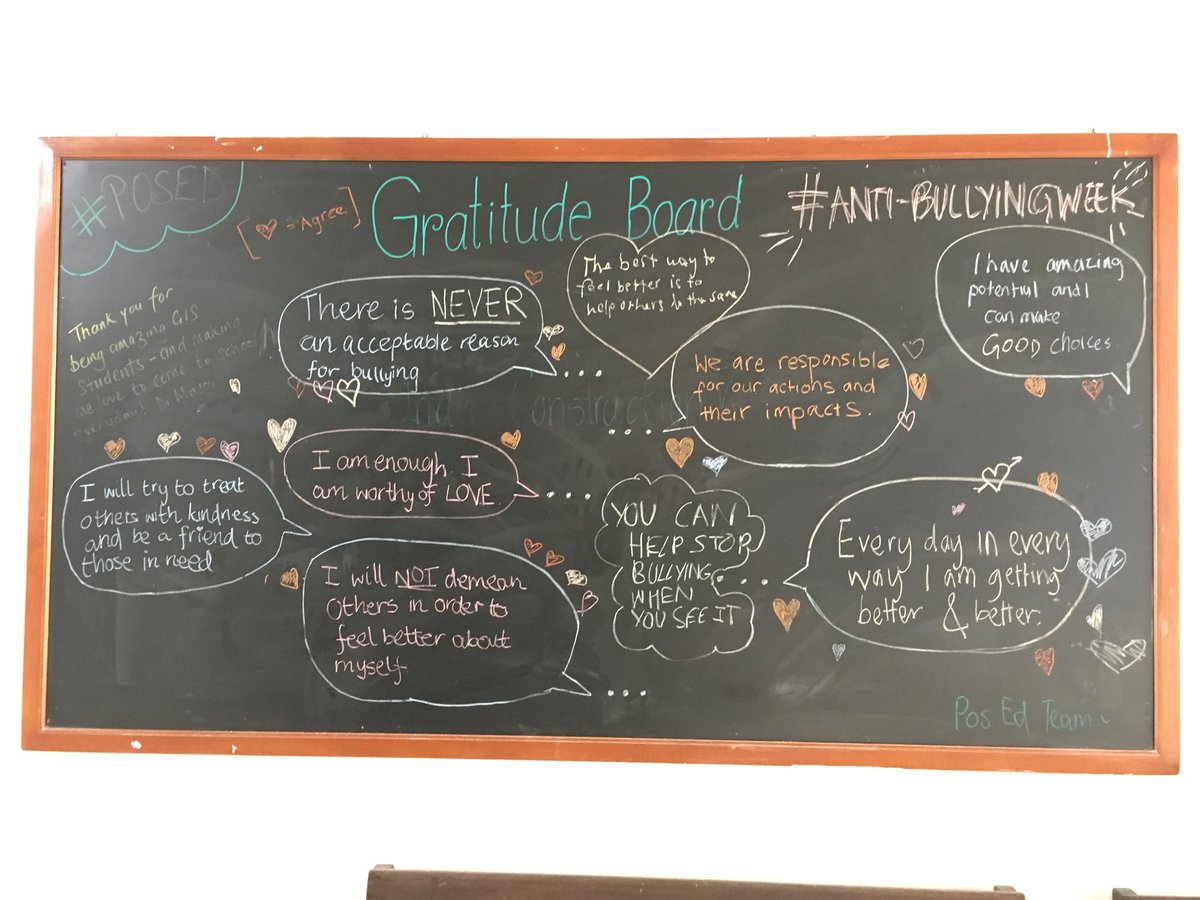 #POSED
[♥ = Agree]
Gratitude Board
#ANTI-BULLYINGWEEK
Thank you for
being amazing GIS
students - and making
me love to come to school
everyday!
There is NEVER
an acceptable reason
for bullying
...
The best way to
feel better is to
help others do the same
We are responsible
for our actions and
their impacts.
...
I have amazing
potential and I
can make
GOOD choices.
Under Construction
I will try to treat
others with kindness
and be a friend to
those in need
I am enough. I
am worthy of LOVE
...
I will NOT demean
others in order to
feel better about
myself.
...
YOU CAN
HELP STOP
BULLYING
WHEN
YOU SEE IT
...
Every day in every
way I am getting
better & better.
Pos Ed Team